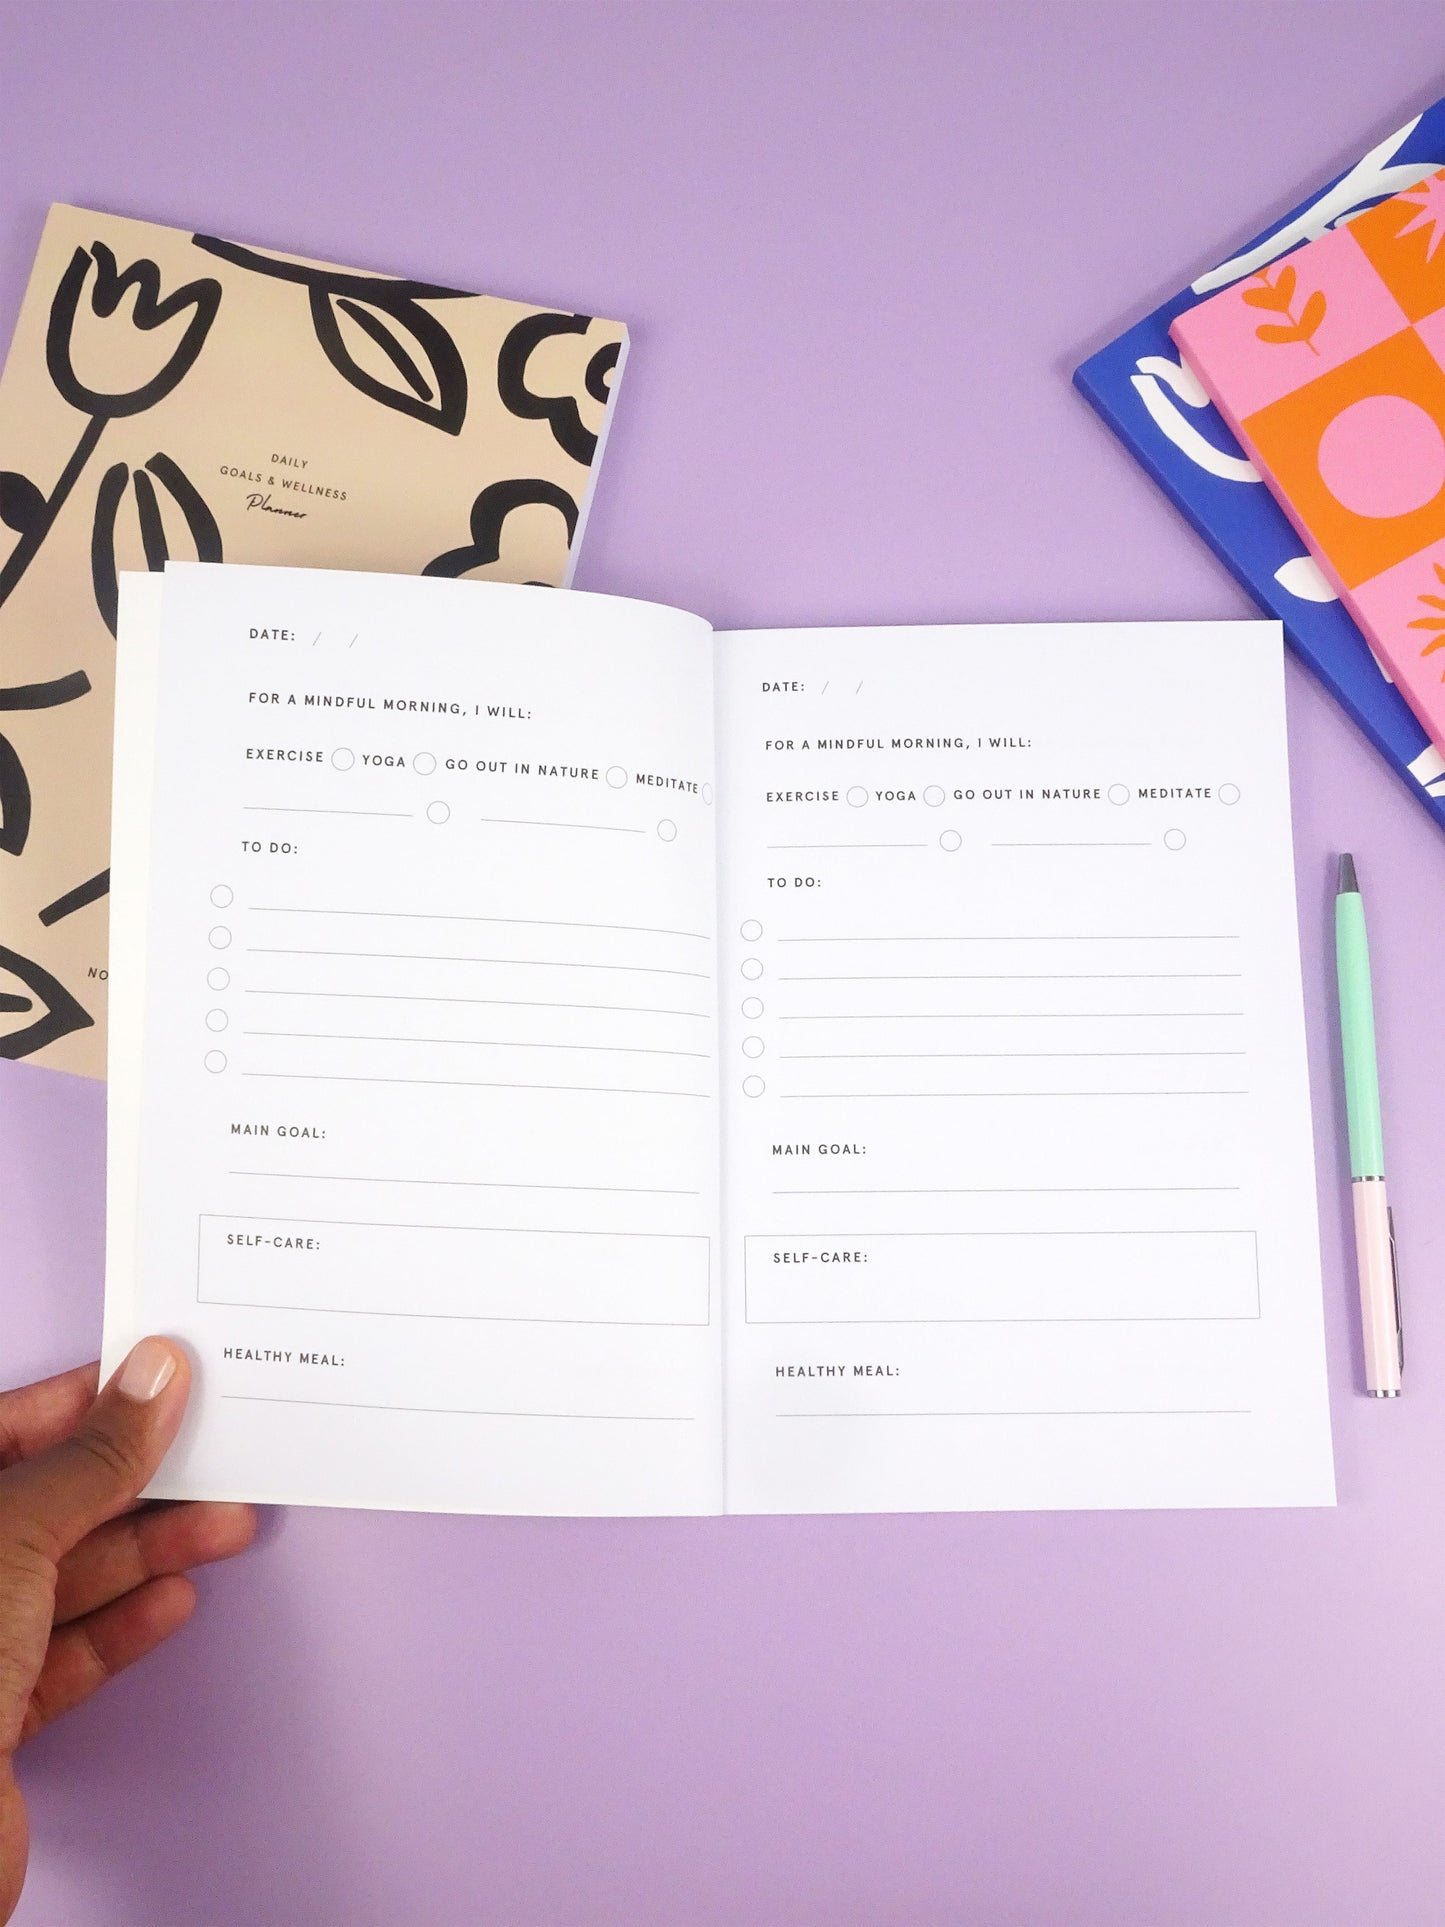 DAILY
GOALS & WELLNESS
Planner
NO
DATE: / /
FOR A MINDFUL MORNING, I WILL:
EXERCISE YOGA GO OUT IN NATURE MEDITATE
TO DO:
MAIN GOAL:
SELF-CARE:
HEALTHY MEAL:
DATE: / /
FOR A MINDFUL MORNING, I WILL:
EXERCISE YOGA GO OUT IN NATURE MEDITATE
TO DO:
MAIN GOAL:
SELF-CARE:
HEALTHY MEAL: